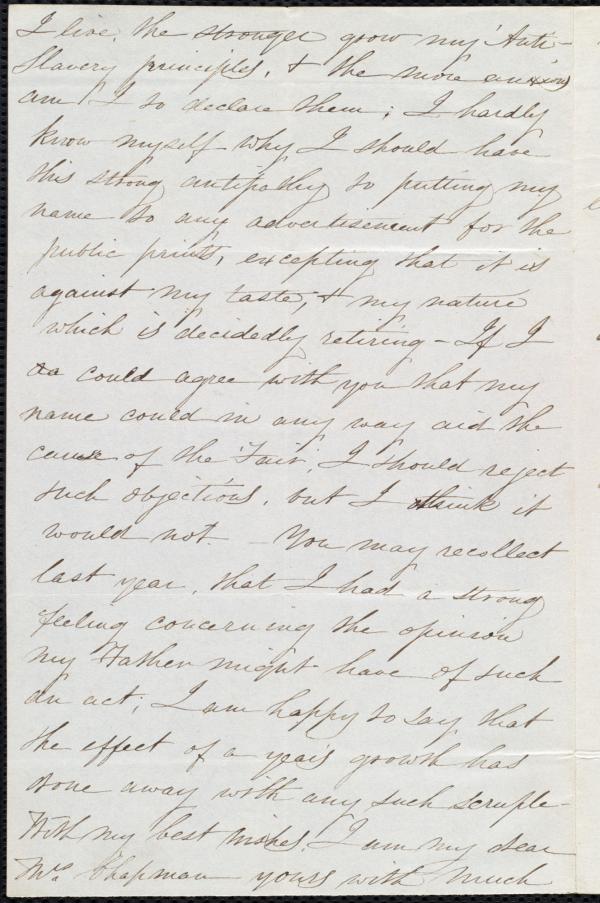 I live, the stronger grow my Anti-
Slavery principles, & the more anxious
am I to declare them; I hardly
know myself why I should have
this strong antipathy to putting my
name to any advertisement for the
public prints, excepting that it is
against my taste, & my nature
which is decidedly retiring - If I
could agree with you that my
name could in any way aid the
cause of the Fair, I should reject
such objections, but I think it
would not - You may recollect
last year, that I had a strong
feeling concerning the opinion
my Father might have of such
an act; I am happy to say that
the effect of a year's growth has
done away with any such scruple -
With my best wishes, I am my dear
Mrs Chapman yours with much